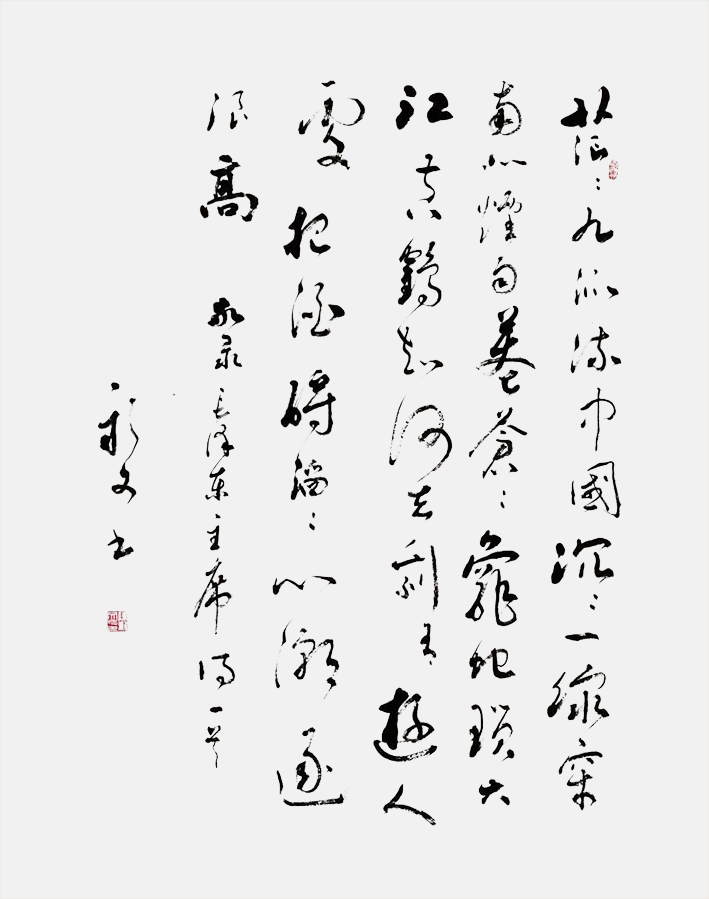 茫々九派流中國沉々一線穿
南北煙雨莽蒼々龜蛇鎖大
江黃鶴知何去剩有遊人
處把酒酹滔々心潮逐
浪高 敬录毛泽东主席词一首
文书